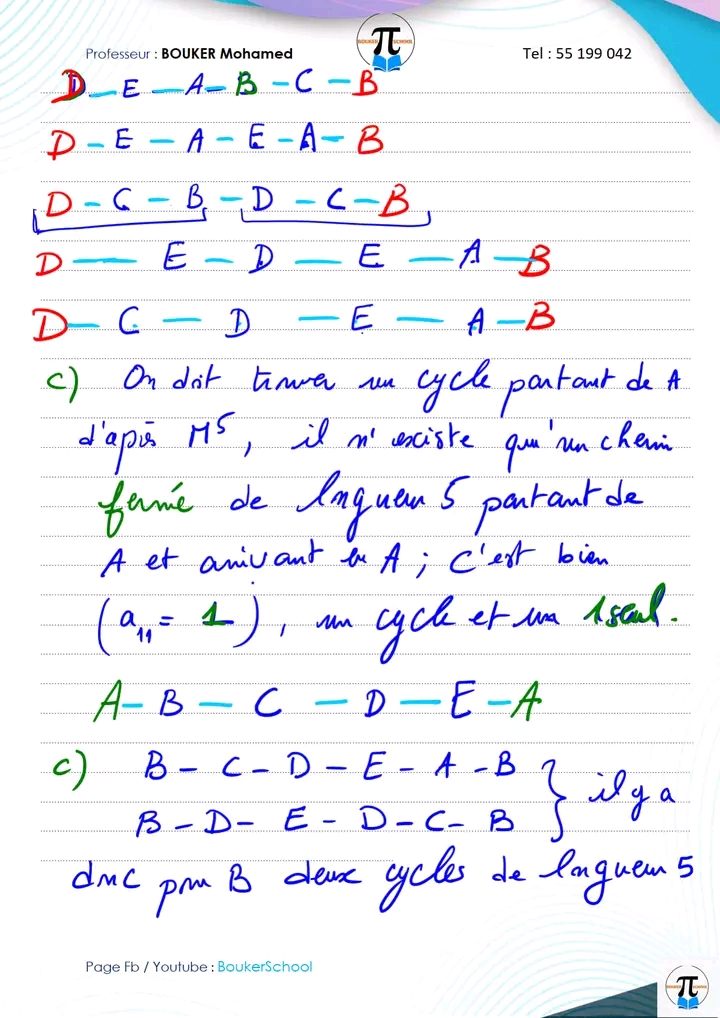 Professeur : BOUKER Mohamed
BOUKER SCHOOL
Tel : 55 199 042
D - E - A - B - C - B
D - E - A - E - A - B
D - C - B - D - C - B
D - E - D - E - A - B
D - C - D - E - A - B
c) On doit trouver un cycle partant de A
d'après M⁵, il n'existe qu'un chemin
fermé de longueur 5 partant de
A et arrivant en A ; C'est bien
(a₁₁ = 1), un cycle et un 1 seul.
A - B - C - D - E - A
c) B - C - D - E - A - B
B - D - E - D - C - B } il y a
donc pour B deux cycles de longueur 5
Page Fb / Youtube : BoukerSchool